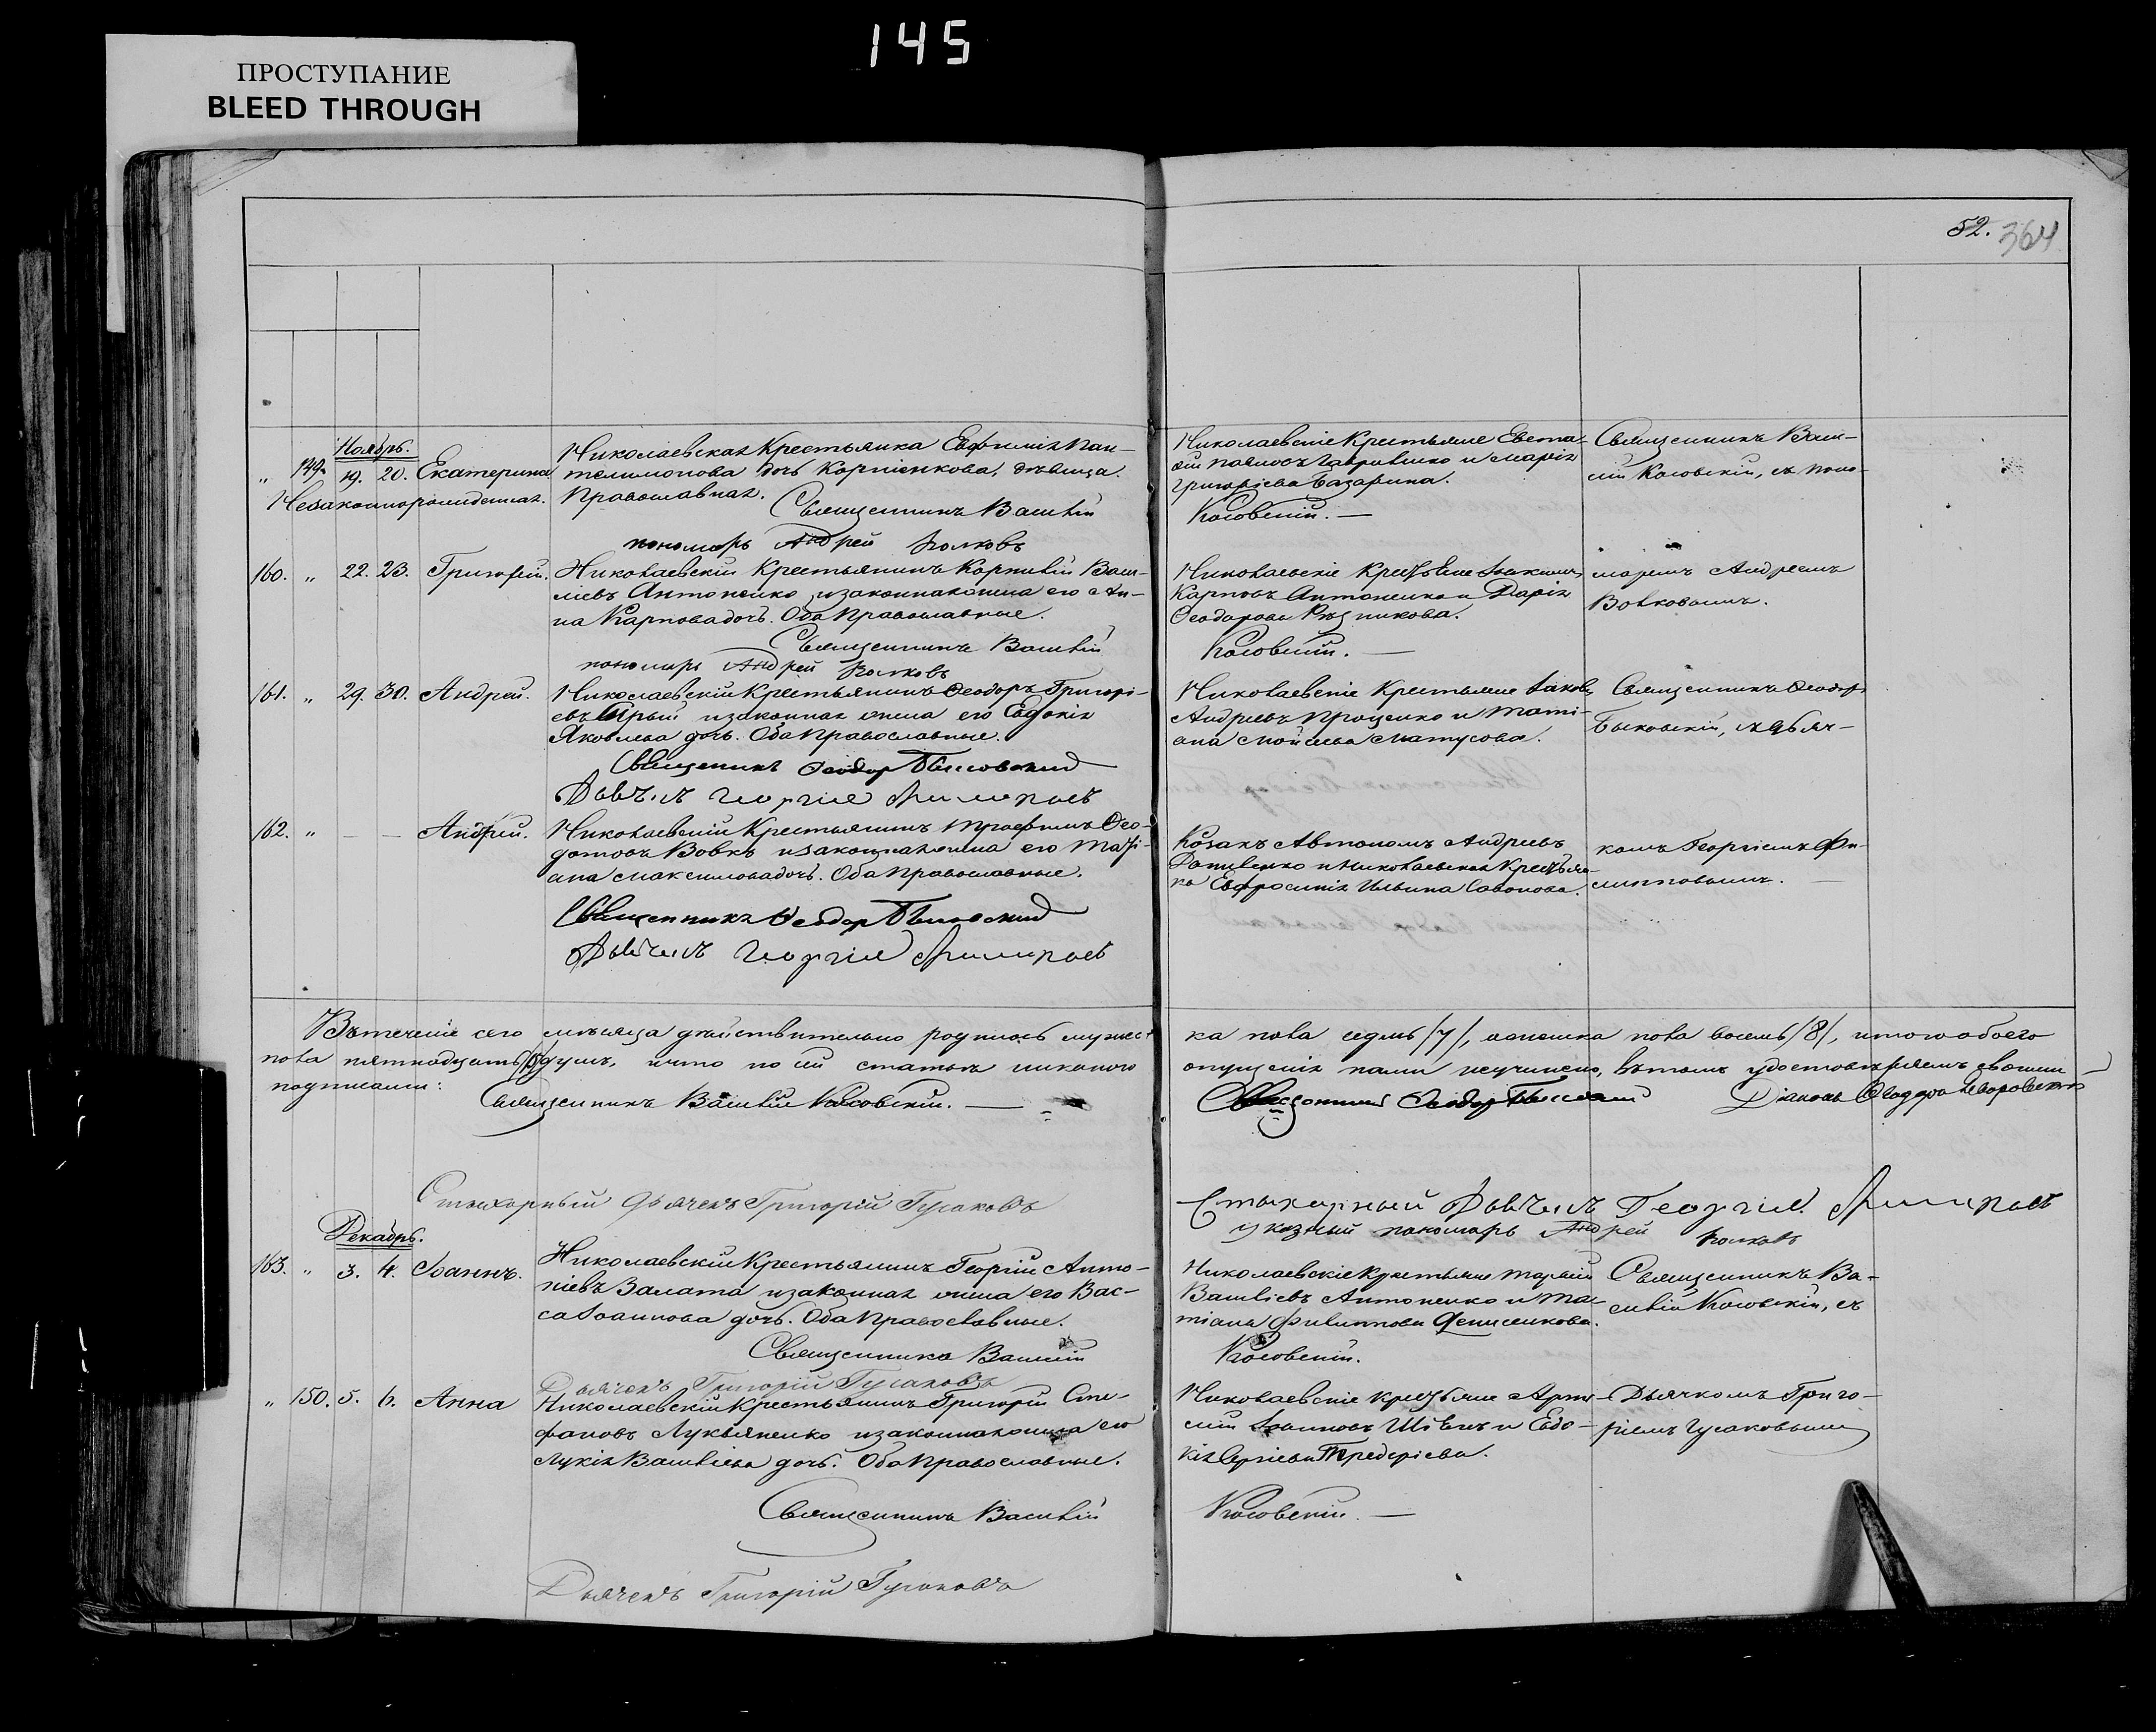 145
ПРОСТУПАНИЕ
BLEED THROUGH
52. 364
Ноябрь.
„ 149. 19. 20. Екатерина
Незаконнорожденная.
Николаевская Крестьянка Евфимія Пан-
телимонова дочь Корніенкова, дѣвица.
Православная.
Священникъ Василій
пономарь Андрей Волковъ
Николаевскіе Крестьяне Евста-
фій Павловъ Гавриленко и Марія
Григорієва Базарина.
Косовскій. —
Священникъ Васи-
лій Косовскій, съ поно-
160. „ 22. 23. Григорій.
Николаевскій Крестьянинъ Корнилій Васи-
ліевъ Антоненко и законная жена его Ан-
на Карпова дочь. Оба Православные.
Священникъ Василій
пономарь Андрей Волковъ
Николаевскіе Крестьяне Іоакимъ
Карповъ Антоненко и Дарія
Ѳеодорова Рѣзникова.
Косовскій. —
маремъ Андреемъ
Волковымъ.
161. „ 29. 30. Андрей.
Николаевскій Крестьянинъ Ѳеодоръ Григорі-
евъ Сірый и законная жена его Евдокія
Яковлева дочь. Оба Православные.
Священникъ Ѳеодор Быковскій
Дьячекъ Георгій Филиповъ
Николаевскіе Крестьяне Іаковъ
Андреевъ Проценко и Таті-
ана Мойсеева Матусова.
Священникъ Ѳеодоръ
Быковскій, съ дьяч-
162. „ — — Андрей.
Николаевскій Крестьянинъ Трофимъ Ѳео-
дотовъ Вовкъ и законная жена его Таті-
ана Максимова дочь. Оба Православные.
Священникъ Ѳеодор Быковскій
Дьячекъ Георгій Филиповъ
Козакъ Автономъ Андреевъ
Даниленко и Николаевская Крестьян-
ка Евфросинія Ильина Савонова.
комъ Георгіемъ Фи-
липповымъ. —
Въ теченіе сего мѣсяца дѣйствительно родилось мужес-
ка пола седмь /7/, женска пола восемь /8/, итого обоего
пола пятнадцать /15/ душъ, и что по сій статьѣ никакого
опущенія нами неучинено, въ томъ удостовѣряемъ своими
подписами:
Священникъ Василій Косовскій. —
Священникъ Ѳеодор Быковскій
Діаконъ Ѳеодоръ
Стихарный дьячекъ Григорій Гусаковъ
Стихарный Дьячекъ Георгій Филиповъ
указный пономарь Андрей Волковъ
Декабрь.
163. „ 3. 4. Іоаннъ.
Николаевскій Крестьянинъ Георгій Анто-
ніевъ Залата и законная жена его Вас-
са Іоаннова дочь. Оба Православные.
Священникъ Василій
Дьячекъ Григорій Гусаковъ
Николаевскіе Крестьяне
Василіевъ Антоненко и Та-
тіана Филиппова Денисенкова.
Косовскій.
Священникъ Ва-
силій Косовскій, съ
„ 150. 5. 6. Анна
Николаевскій Крестьянинъ Григорій Сте-
фановъ Лукьяненко и законная жена его
Лукія Василіева дочь. Оба Православные.
Священникъ Василій
Дьячекъ Григорій Гусаковъ
Николаевскіе Крестьяне Арте-
мій Іоанновъ Швецъ и Евдо-
кія Сергіева
Косовскій. —
Дьячкомъ Григо-
ріемъ Гусаковымъ